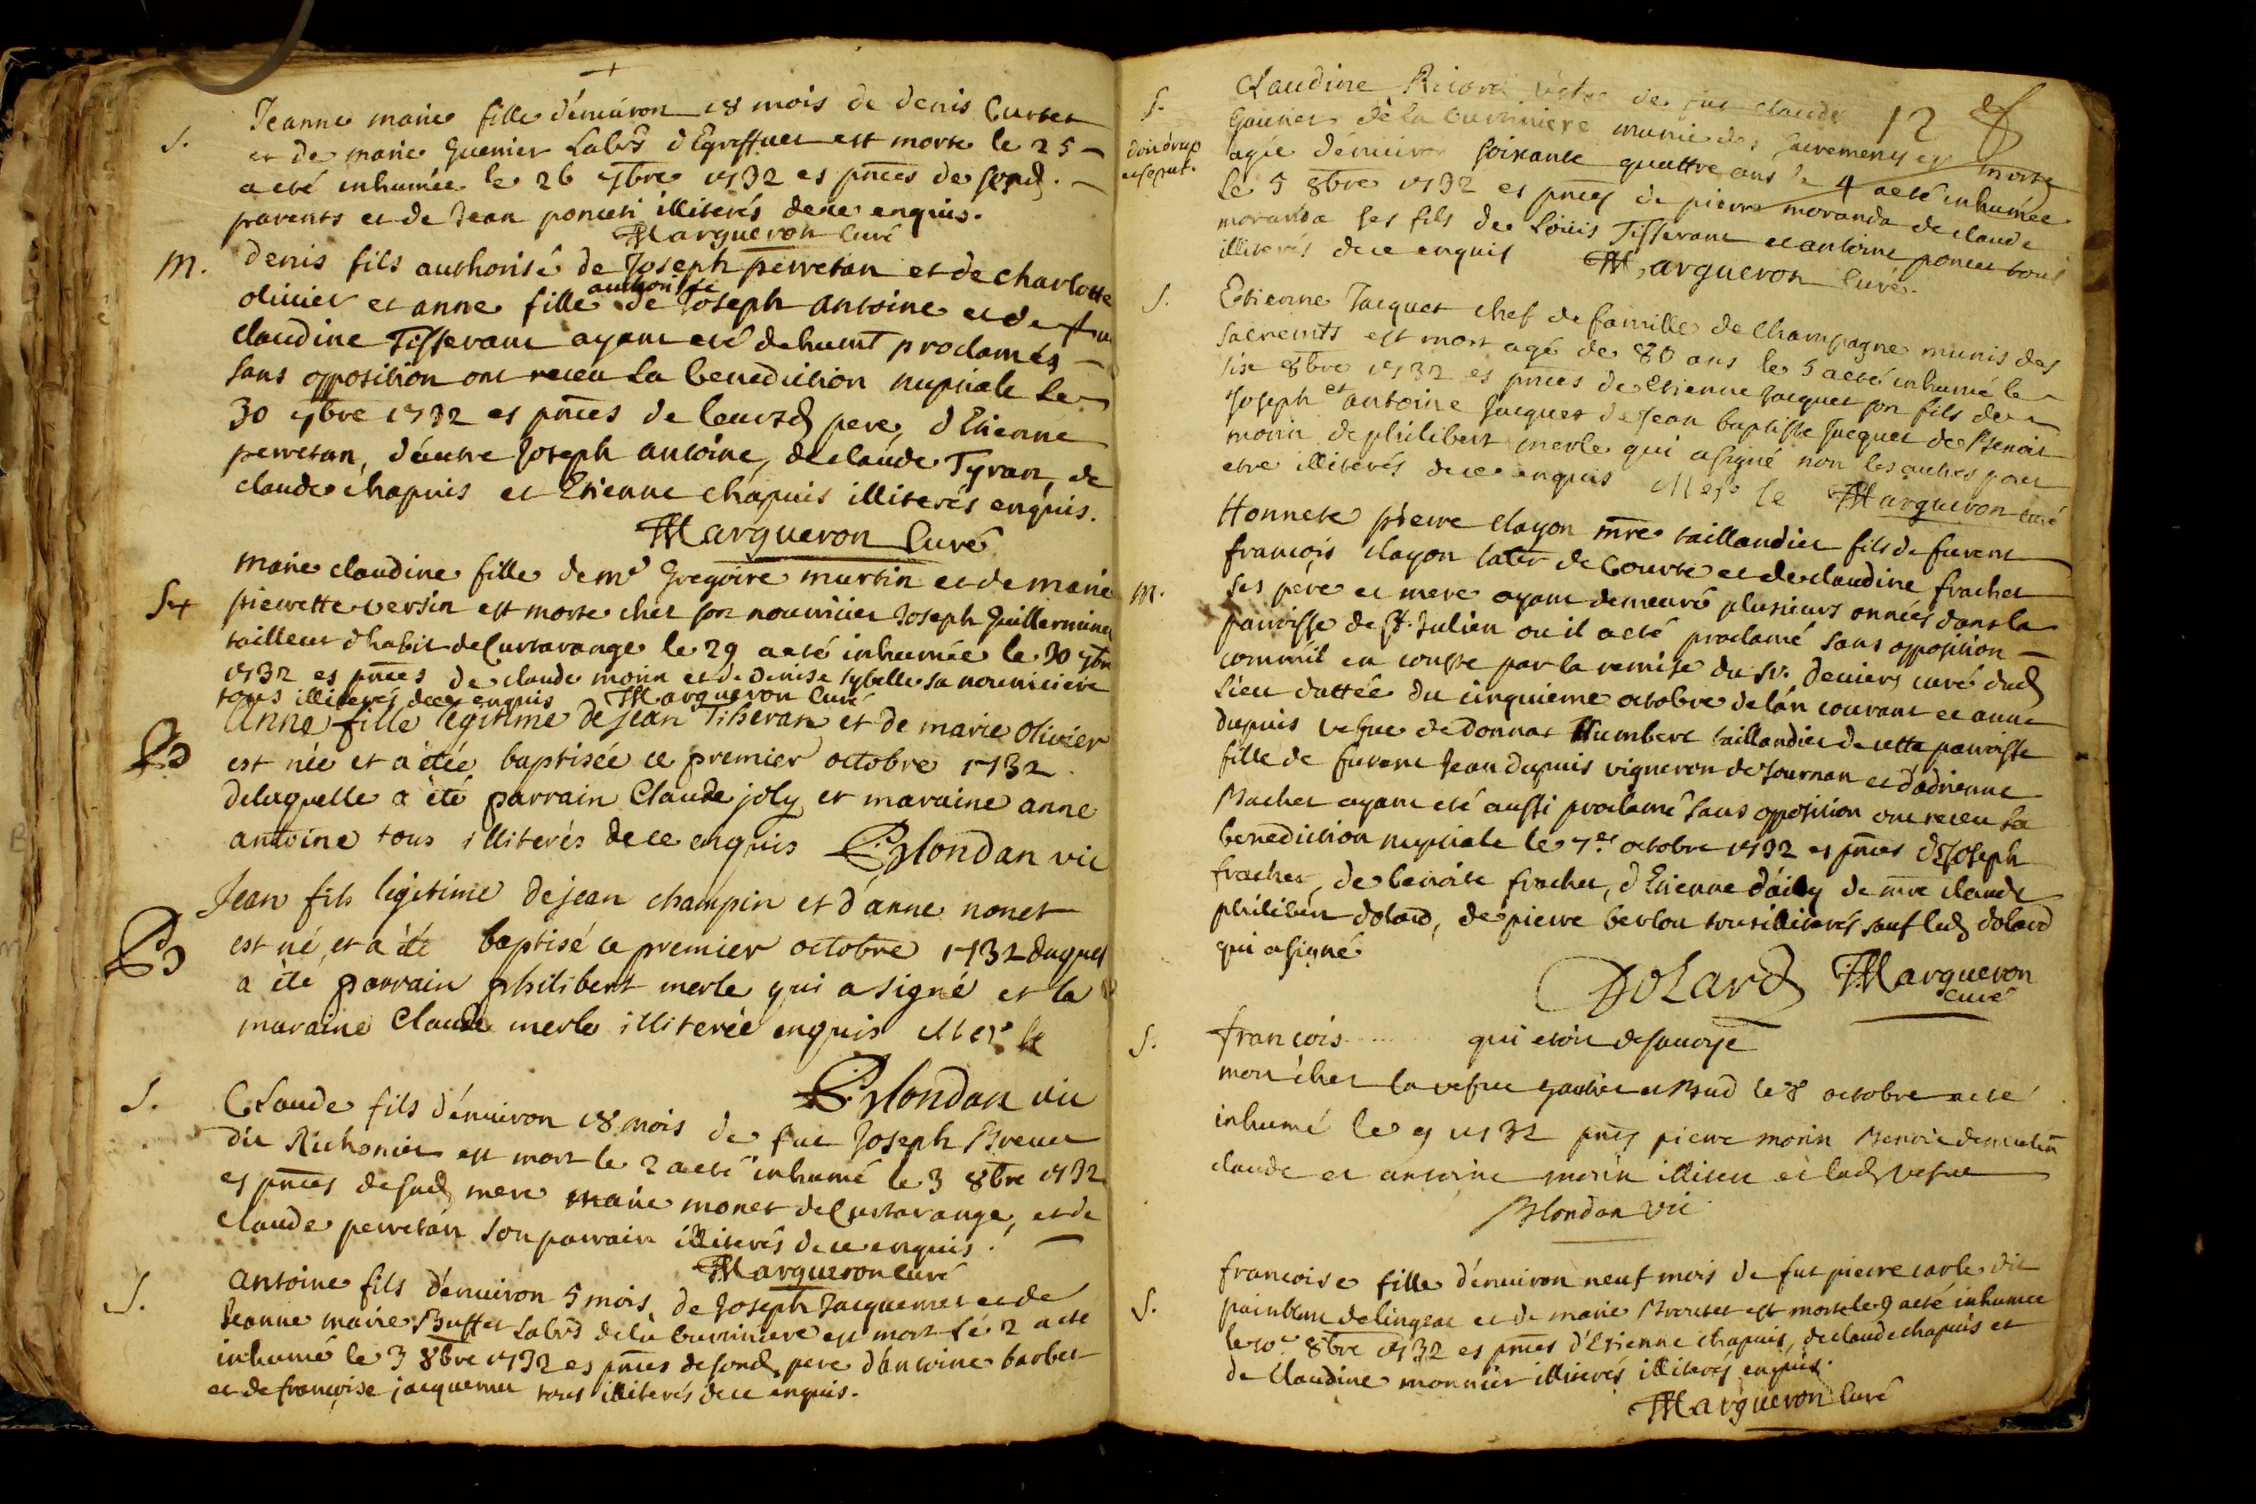 S.
Jeanne marie fille d'énuiron 18 mois de denis Curtet
et de marie Guenier Labrs d'Egreffuet est morte le 25
a eté inhumée le 26 7bre 1732 es pnces de sesd.
parents et de Jean poncet illiterés de ce enquis.
Margueron Curé
M.
denis fils authorisé de Joseph perretan et de charlotte
authorisée
olivier et anne fille de Joseph antoine et de fue
claudine Tisserant ayant eté dehumt proclamés
sans opposition ont receu la benediction nuptiale le
30 7bre 1732 es pnces de leursd pere, d'Etienne
perretan, d'autre Joseph antoine, de claude Tyran, de
claude chapuis et Etienne chapuis illiterés enquis.
Margueron Curé
S+
marie claudine fille de mr Gregoire martin et de marie
pierrette versin est morte chez son nourricier Joseph Guillerminet
tailleur d'habit de Curtarange le 29 a eté inhumée le 30 7bre
1732 es pnces de claude morin et de denise sybelle sa nourriciere
tous illiterés de ce enquis Margueron Curé
B
Anne fille legitime de jean Tiseran et de marie olivier
est née et a étée baptisée ce premier octobre 1732
delaquelle a été parrain Claude joly et maraine anne
antoine tous illiterés de ce enquis Blondan vic
B
Jean fils legitime de jean champin et d'anne nonet
est né, et a été baptisé ce premier octobre 1732 duquel
a été parrain philibert merle qui a signé et la
maraine Claude merle illiterée enquis Merle
Blondan vic
S.
Claude fils d'énuiron 18 mois de fut Joseph Breuet
dit Richonier est mort le 2 a eté inhumé le 3 8bre 1732
es pnces de sad mere marie monet de Curtarange, et de
claude perretan son parrain illiterés de ce enquis.
Margueron Curé
S.
antoine fils d'énuiron 5 mois de Joseph Jacquemet et de
Jeanne marie Buffet Labrs de la buviniere est mort le 2 a eté
inhumé le 3 8bre 1732 es pnces de sond pere d'antoine barbet
et de françoise jacquemet tous illiterés de ce enquis.
12
S.
Claudine Ricard vefve de fut claude
Gaunet de la buviniere munie des sacrements est morte
agée d'énuiron soixante quattre ans le 4 a eté inhumée
le 5 8bre 1732 es pnces de pierre moranda de claude
moranda ses fils de Louis Tisserant et antoine poncet tous
illiterés de ce enquis Margueron Curé.
S.
Etienne Jacquet chef de famille de Champagne munis des
sacremts est mort agé de 80 ans le 5 a eté inhumé le
six 8bre 1732 es pnces de Etienne Jacquet son fils de
Joseph et antoine Jacquet de Jean baptiste Jacquet de Benoit
morin de philibert merle qui a signé non les autres pour
etre illiterés de ce enquis Merle Margueron curé
M.
Honnete pierre clayon mre taillandier fils de furent
françois clayon labr de Courte et de claudine frachet
ses pere et mere ayant demeuré plusieurs années dans la
parroisse de St. Julien ou il a eté proclamé sans opposition
comme il en conste par la remise du Sr. Deuiers curé dud
Lieu dattée du cinquieme octobre de l'an courant et anne
dupuis vefve de donnat Humbert taillandier de cette parroisse
fille de furent Jean dupuis vigneron de Journan et d'adrienne
Machet ayant eté aussi proclamé sans opposition ont receu la
benediction nuptiale le 7e octobre 1732 es pnces de Joseph
frachet, de benoite frachet, d'Etienne d'ailly de mre claude
philibert dolard, de pierre berlou tous illiterés sauf led dolard
qui a signé
Dolard Margueron
curé
S.
françois ..... qui etoit de savoye
mort chez la vefve Gautier a Mud le 8 octobre a eté
inhumé le 9 1732 pnts pierre morin Benoit demoulin
claude et antoine morin illiteré et lad vefve
Blondan vic
S.
francoise fille d'énuiron neuf mois de fut pierre carle dit
painblanc de lingeat et de marie Brevet est morte le 9 a eté inhumée
le 10e 8bre 1732 es pnces d'Etienne chapuis, de claude chapuis et
de Claudine monnier illiterés illiterés enquis.
Margueron Curé